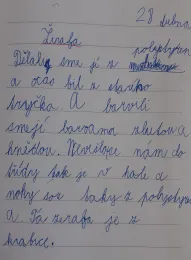 28 dubna
Žirafa
Dělali sme jí z polystyren
a ocas bil z starího
trička A barvili
smejí barvama žlutou a
hnědou. Nevešla se nám do
třídy tak je v hale a
nohy sou taky z polystyrenu
a Ta žirafa je z
krabice.